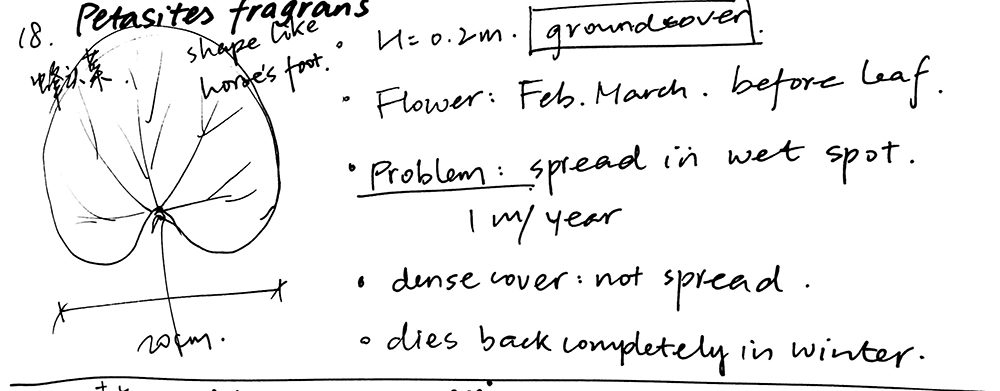 18. Petasites fragrans
蜂斗菜.
shape like
horse's foot.
20cm.
• H=0.2m. groundcover.
• Flower: Feb. March. before leaf.
• Problem: spread in wet spot.
1 m/year
• dense cover: not spread.
• dies back completely in winter.